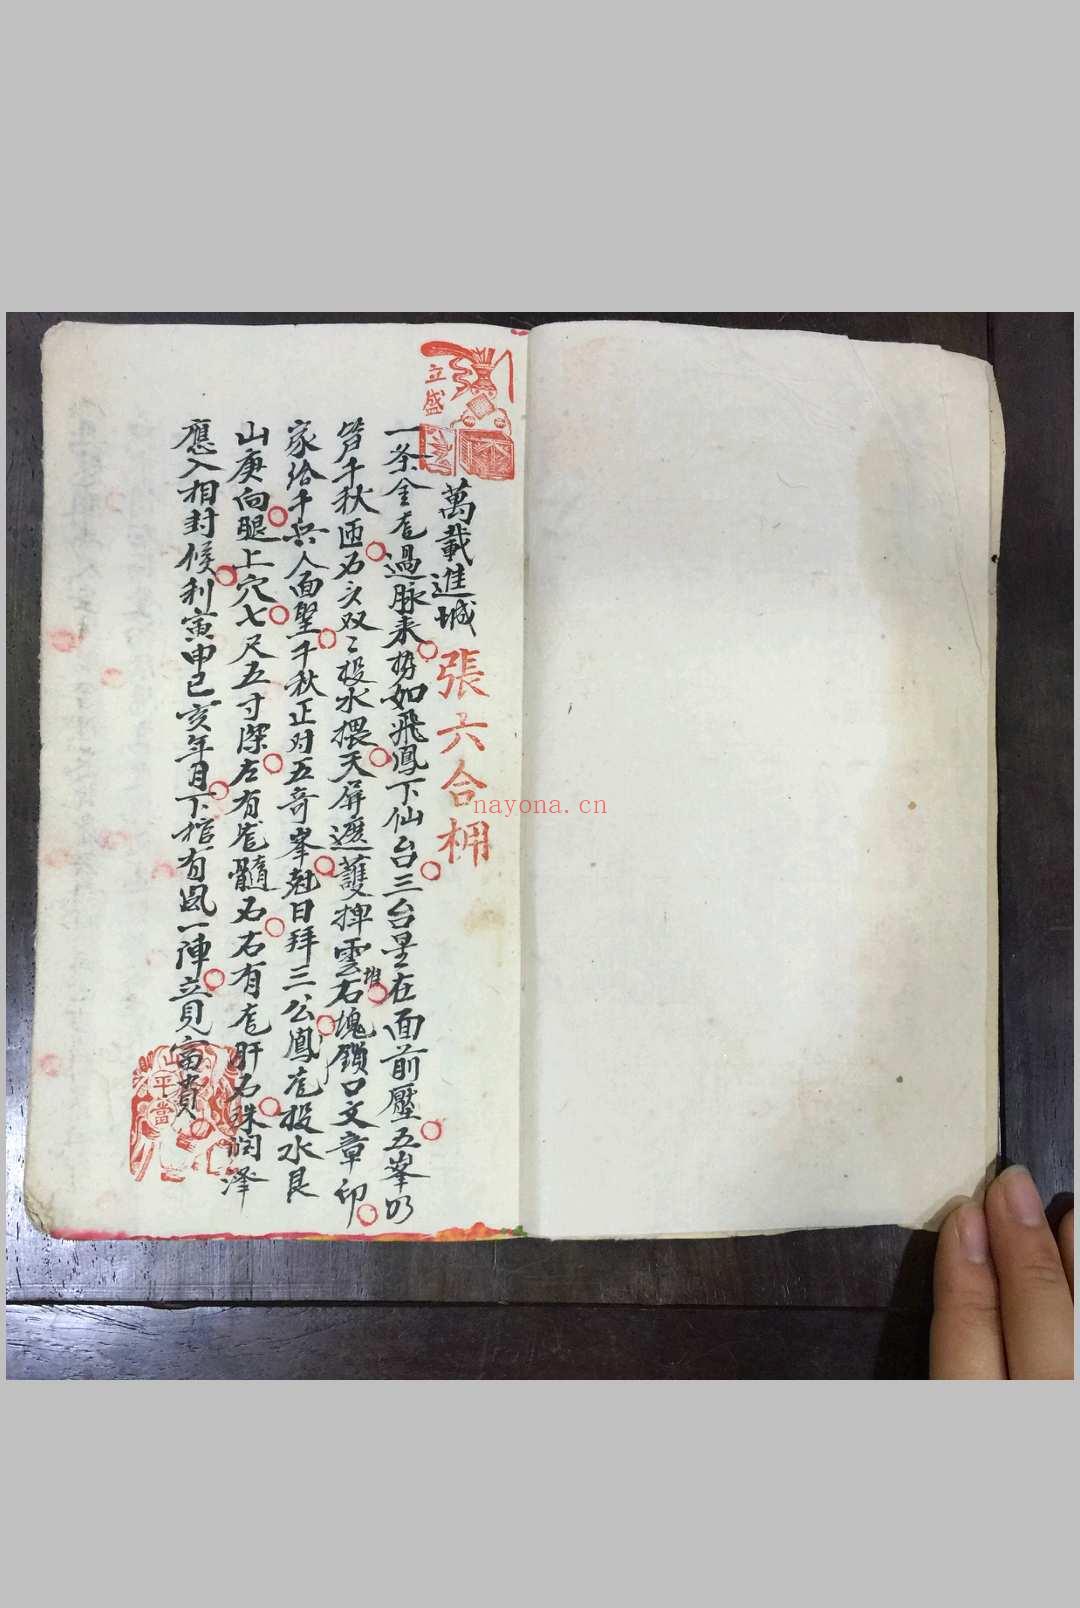 立盛
萬載進城
張六合枬
一条金尨過脉来势如飛鳳下仙台三台星在面前壓五峯乃
笋千秋匝石穴双〻投水揋天屏遮護捭雲右塊鎖口文章印
堆
家给千兵人面壂千秋正对五奇峯魁日拜三公鳳尨投水艮
山庚向腿上穴七尺五寸深左有尨髓石右有尨肝石珠润泽
應入相封候利寅申巳亥年月下棺有風一陣立見富貴
山
平當
nayona.cn